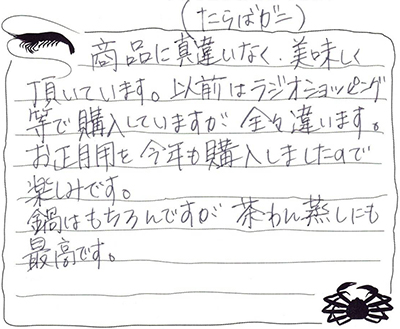 (たらばがに)
商品に真違いなく、美味しく
頂いています。以前はラジオショッピング
等で購入していますが 全々違います。
お正月用を今年も購入しましたので
楽しみです。
鍋はもちろんですが 茶わん蒸しにも
最高です。